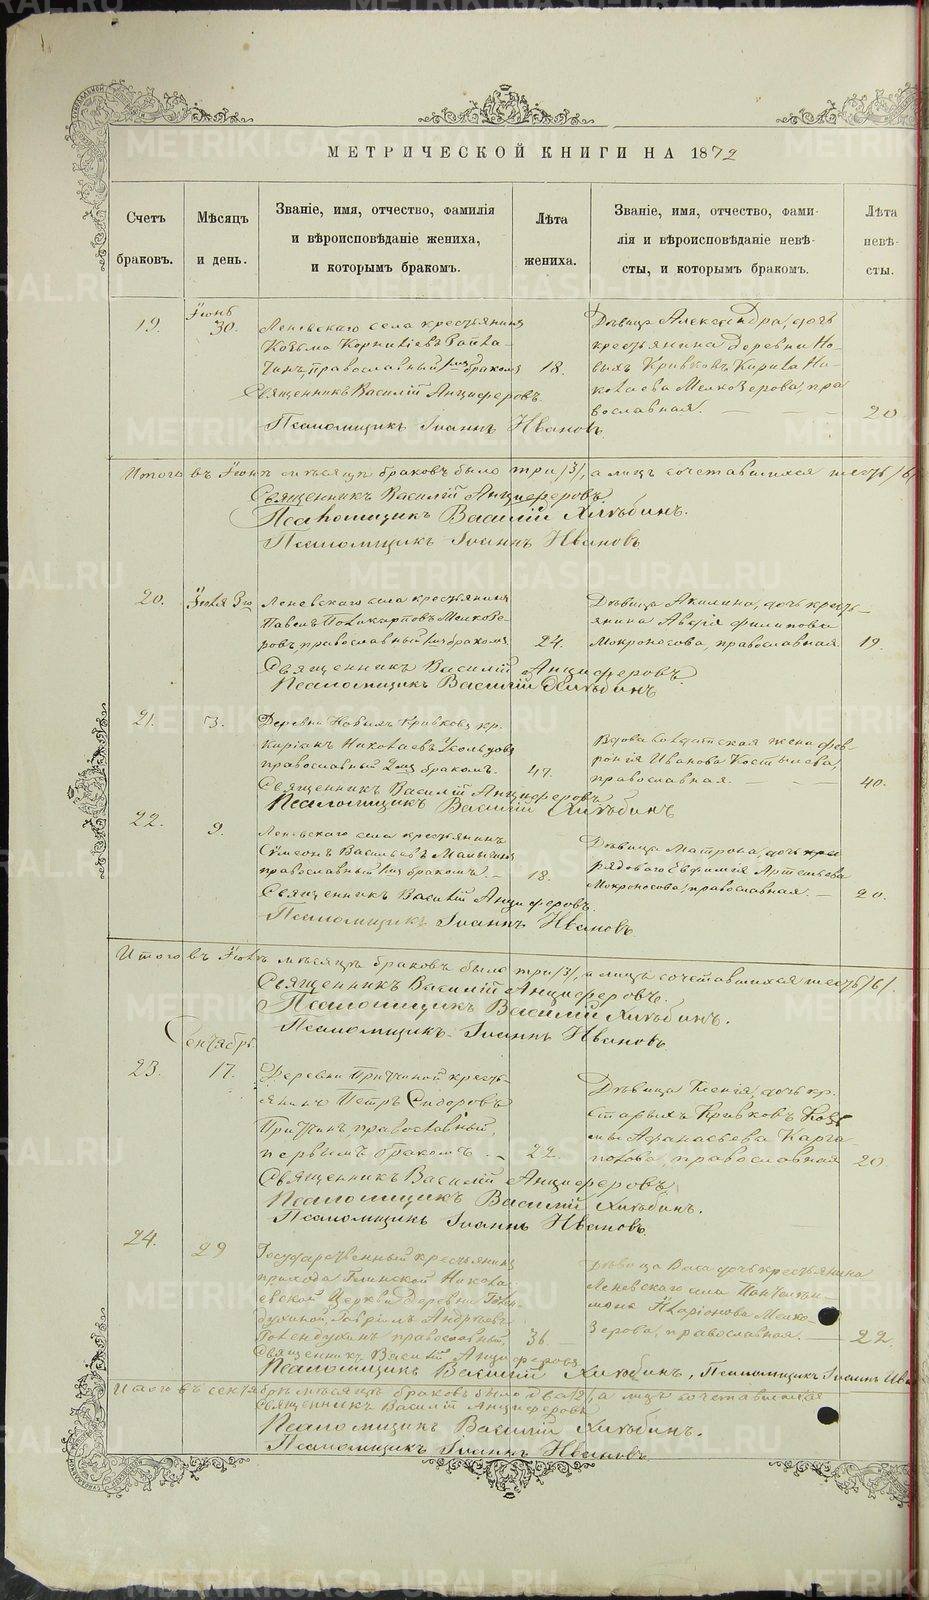 МЕТРИЧЕСКОЙ КНИГИ НА 1872
Счетъ
браковъ.
Мѣсяцъ
и день.
Званіе, имя, отчество, фамилія
и вѣроисповѣданіе жениха,
и которымъ бракомъ.
Лѣта
жениха.
Званіе, имя, отчество, фами-
лія и вѣроисповѣданіе невѣ-
сты, и которымъ бракомъ.
Лѣта
невѣ-
сты.
19.
30.
Леневскаго села крестьянинъ
Козьма Корниліевъ
православный бракомъ
18.
Дѣвица Александра, дочь
крестьянина деревни Но-
выхъ Кривковъ Кирила Ни-
колаева Мелкозерова, пра
вославная.
20
Священникъ Василій Анциферовъ.
Псаломщикъ Іоаннъ Ивановъ
Итого въ мѣсяцѣ браковъ было три /3/, а лицъ сочетавшихся шесть /6/
Священникъ Василій Анциферовъ
Псаломщикъ Василій Хлѣбинъ.
Псаломщикъ Іоаннъ Ивановъ
20.
Іюля 3го
Леневскаго села крестьянинъ
Павелъ Поликарповъ Мелкозе-
ровъ, православный 1мъ бракомъ
24.
Дѣвица Акилина, дочь кресть-
янина Аверія Филипова
Мокроносова, православная
19.
Священникъ Василій Анциферовъ.
Псаломщикъ Василій Хлѣбинъ
21.
Деревни Новыхъ Кривковъ кр.
Киріакъ Николаевъ
православный 2мъ бракомъ.
47.
Вдова солдатская жена Фев-
ронія Иванова Костылева,
православная.
40.
Священникъ Василій Анциферовъ
Псаломщикъ Василій Хлѣбинъ
22.
9.
Леневскаго села крестьянинъ
Сѵмеонъ Васильевъ
православный 1мъ бракомъ.
18.
Дѣвица Матрона, дочь
рядоваго Евфимія Артемьева
Мокроносова, православная.
20.
Священникъ Василій Анциферовъ.
Псаломщикъ Іоаннъ Ивановъ
Итого въ Іюлѣ мѣсяцѣ браковъ было три /3/, а лицъ сочетавшихся шесть /6/.
Священникъ Василій Анциферовъ.
Псаломщикъ Василій Хлѣбинъ.
Псаломщикъ Іоаннъ Ивановъ
Сентябрь
23.
17.
Деревни крестъ-
янинъ Петръ Сидоровъ
православный,
первымъ бракомъ.
22.
Дѣвица Ксенія, дочь кр.
Старыхъ Кривковъ Козь
мы Афанасьева Карга-
полова, православная
20
Священникъ Василій Анциферовъ
Псаломщикъ Василій Хлѣбинъ.
Псаломщикъ Іоаннъ Ивановъ.
24.
29
Государственный крестьянинъ
прихода Глинской Никола-
евской Церкви деревни Голен-
духиной, Гавріилъ Андреевъ
Голендухинъ православный
36
Дѣвица дочь крестьянина
Леневскаго села Пантелеи-
мона Иларіонова Мелко-
зерова, православная.
22
Священникъ Василій Анциферовъ
Псаломщикъ Василій Хлѣбинъ, Псаломщикъ Іоаннъ
Итого въ сентябрѣ мѣсяцѣ браковъ было два /2/, а лицъ сочетавшихся
Священникъ Василій Анциферовъ
Псаломщикъ Василій Хлѣбинъ.
Псаломщикъ Іоаннъ Ивановъ
METRIKI.GASO-URAL.RU